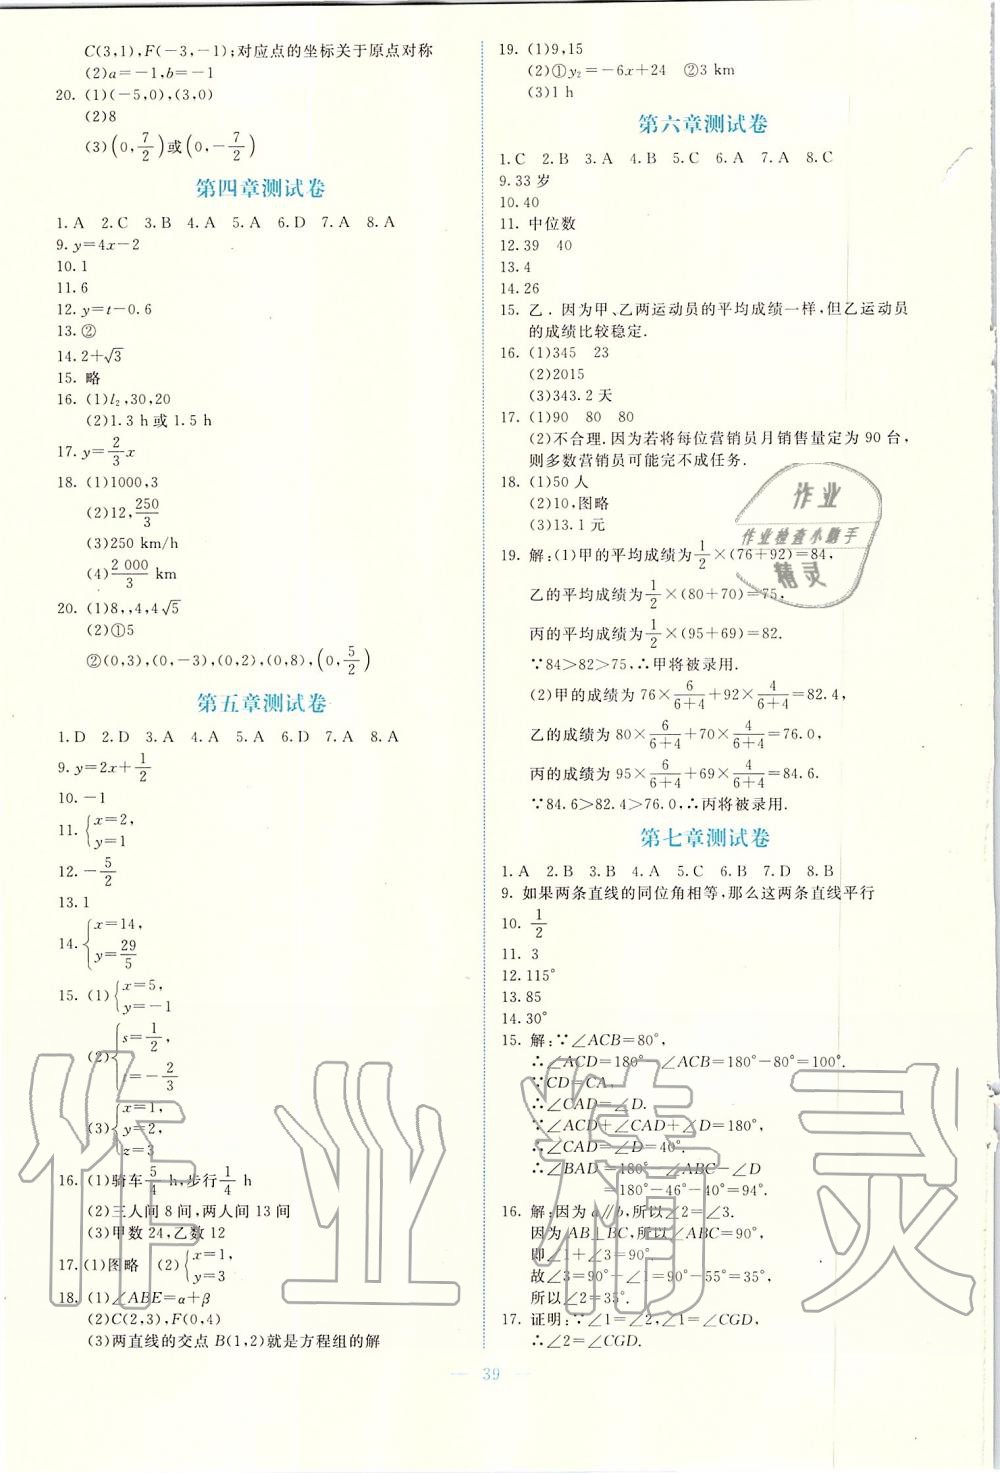 C(3,1),F(-3,-1);对应点的坐标关于原点对称
(2)a=-1,b=-1
20. (1)(-5,0),(3,0)
(2)8
(3)(0,7/2)或(0,-7/2)
第四章测试卷
1. A 2. C 3. B 4. A 5. A 6. D 7. A 8. A
9. y=4x-2
10. 1
11. 6
12. y=t-0.6
13. ②
14. 2+√3
15. 略
16. (1)l₂,30,20
(2)1.3 h或1.5 h
17. y=2/3 x
18. (1)1000,3
(2)12,250/3
(3)250 km/h
(4)2 000/3 km
20. (1)8,,4,4√5
(2)①5
②(0,3),(0,-3),(0,2),(0,8),(0,5/2)
第五章测试卷
1. D 2. D 3. A 4. A 5. A 6. D 7. A 8. A
9. y=2x+1/2
10. -1
11. {x=2,
y=1
12. -5/2
13. 1
14. {x=14,
y=29/5
15. (1){x=5,
y=-1
(2){s=1/2,
=-2/3
(3){x=1,
y=2,
z=3
16. (1)骑车5/4 h,步行1/4 h
(2)三人间8间,两人间13间
(3)甲数24,乙数12
17. (1)图略 (2){x=1,
y=3
18. (1)∠ABE=α+β
(2)C(2,3),F(0,4)
(3)两直线的交点B(1,2)就是方程组的解
19. (1)9,15
(2)①y₂=-6x+24 ②3 km
(3)1 h
第六章测试卷
1. C 2. B 3. A 4. B 5. C 6. A 7. A 8. C
9. 33岁
10. 40
11. 中位数
12. 39 40
13. 4
14. 26
15. 乙. 因为甲、乙两运动员的平均成绩一样,但乙运动员
的成绩比较稳定.
16. (1)345 23
(2)2015
(3)343.2天
17. (1)90 80 80
(2)不合理.因为若将每位营销员月销售量定为90台,
则多数营销员可能完不成任务.
18. (1)50人
(2)10,图略
(3)13.1元
19. 解:(1)甲的平均成绩为1/2×(76+92)=84,
乙的平均成绩为1/2×(80+70)=75,
丙的平均成绩为1/2×(95+69)=82.
∵84>82>75,∴甲将被录用.
(2)甲的成绩为76×6/(6+4)+92×4/(6+4)=82.4,
乙的成绩为80×6/(6+4)+70×4/(6+4)=76.0,
丙的成绩为95×6/(6+4)+69×4/(6+4)=84.6.
∵84.6>82.4>76.0,∴丙将被录用.
第七章测试卷
1. A 2. B 3. B 4. A 5. C 6. B 7. D 8. B
9. 如果两条直线的同位角相等,那么这两条直线平行
10. 1/2
11. 3
12. 115°
13. 85
14. 30°
15. 解:∵∠ACB=80°,
∴∠ACD=180°-∠ACB=180°-80°=100°.
∵CD=CA,
∴∠CAD=∠D.
∵∠ACD+∠CAD+∠D=180°,
∴∠CAD=∠D=40°.
∴∠BAD=180°-∠ABC-∠D
=180°-46°-40°=94°.
16. 解:因为a∥b,所以∠2=∠3.
因为AB⊥BC,所以∠ABC=90°,
即∠1+∠3=90°
故∠3=90°-∠1=90°-55°=35°,
所以∠2=35°.
17. 证明:∵∠1=∠2,∠1=∠CGD,
∴∠2=∠CGD.
— 39 —
作业
作业检查小助手
精灵
作业精灵